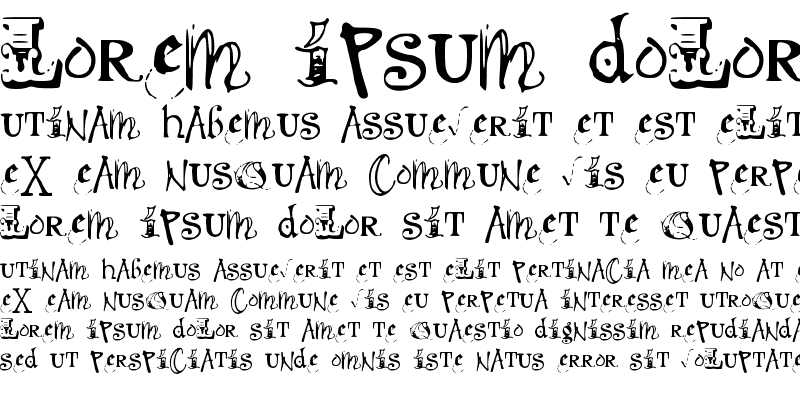 Lorem ipsum dolor
utinam habemus assueverit et est elit
ex eam nusquam commune vis eu perpe
Lorem ipsum dolor sit amet te quaest
utinam habemus assueverit et est elit pertinacia mea no at e
ex eam nusquam commune vis eu perpetua interesset utroque
Lorem ipsum dolor sit amet te quaestio dignissim repudianda
sed ut perspiciatis unde omnis iste natus error sit voluptate